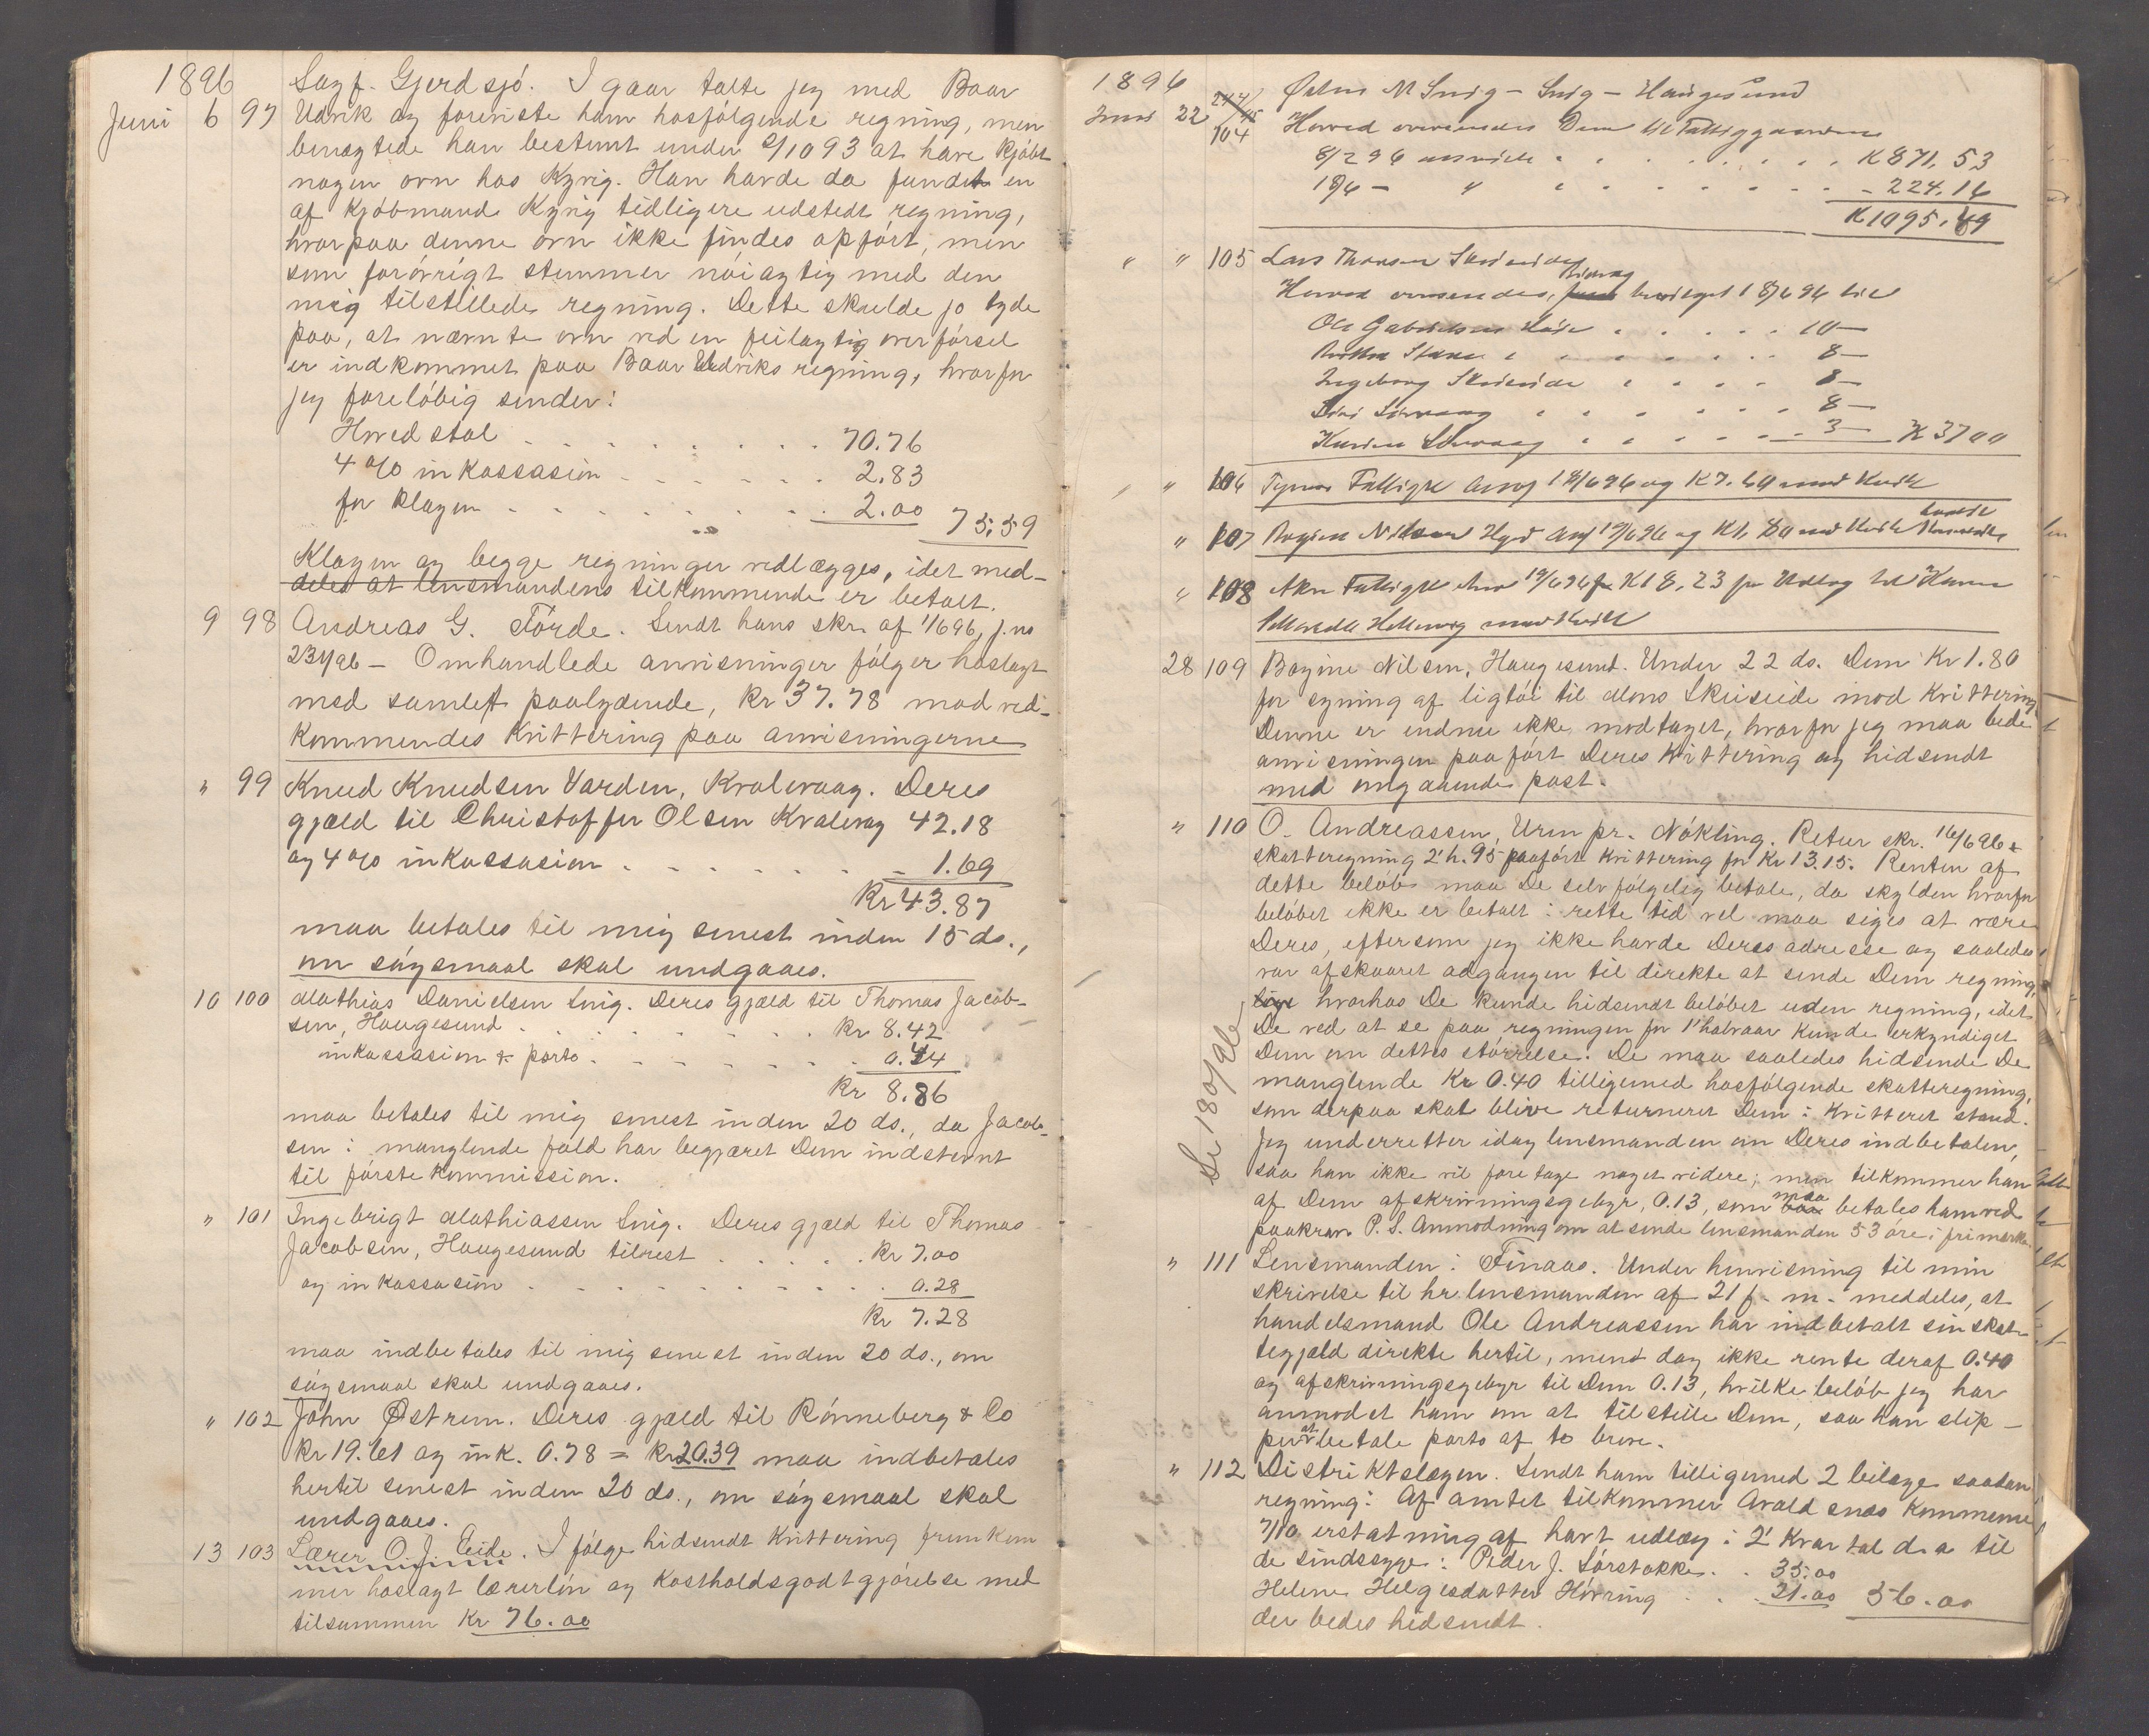 1896
Juni 6 97 Sagf. Gjerdsjö. I gaar talte jeg med Baar
Udvik og foreviste ham hosfölgende regning, men
benægtede han bestemt under 2/10 93 at have kjöbt
nogen ovn hos Kyvig. Han havde da fundet en
af Kjöbmand Kyvig tidligere udstedt regning,
hvorpaa denne ovn ikke findes opfört, men
som forövrigt stemmer nöiagtig med den
mig tilstillede regning. Dette skulde jo tyde
paa, at nævnte ovn ved en feilagtig overförsel
er indkommet paa Baar Udviks regning, hvorfor
jeg foreløbig sender:
Hovedstol . . . . . . . . 70.76
4 % inkassasion . . . . . . 2.83
for klagen . . . . . . . . 2.00 75.59
Klagen og begge regninger vedlægges, idet med-
deles at lensmandens tilkommende er betalt.
9 98 Andreas G. Förde. Sendt hans skr. af 1/6 96, j. no
234/96 - Omhandlede anvisninger fölger hoslagt
med samlet paalydende, Kr 37.78 mod ved-
kommendes kvittering paa anvisningerne
" 99 Knud Knudsen Varden, Kvalevaag. Deres
gjæld til Christoffer Olsen Kvalevag 42.18
og 4% inkassasion . . . . . . 1.69
Kr 43.87
maa betales til mig senest inden 15 ds.,
om sögsmaal skal undgaaes.
10 100 Mathias Danielsen Snig. Deres gjæld til Thomas Jacob-
sen, Haugesund . . . . . . Kr 8.42
inkassasion & porto . . . . . . 0.44
Kr 8.86
maa betales til mig senest inden 20 ds., da Jacob-
sen i manglende fald har begjæret Dem indstevnt
til förste kommission.
" 101 Ingebrigt Mathiassen Snig. Deres gjæld til Thomas
Jacobsen, Haugesund tilrest . . . . . Kr 7.00
og inkassasion . . . . . . . . 0.28
Kr 7.28
maa indbetales til mig senest inden 20 ds., om
sögsmaal skal undgaaes.
" 102 John Østrem. Deres gjæld til Rönneberg & Co
Kr 19.61 og ink. 0.78 = Kr 20.39 maa indbetales
hertil senest inden 20 ds., om sögsmaal skal
undgaaes.
13 103 Lærer O. J. Eide. I fölge hidsendt kvittering fremkom
mer hoslagt lærerlön og Kostholdsgodtgjörelse med
tilsammen Kr 76.00
1896
Juni 22 104 Snig - Snig - Haugesund
Herved oversendes Dem til Fattiggaarden
8/2 96 anviste . . . . . . . . K 871,53
18/6 - " . . . . . . . . 224.16
K 1095.69
" " 105 Lars Thorsen Skeiseide
Herved oversendes, Bidrag bevilget 18/6 96 til
Ole Gabrielsen . . . . . 10 —
. . . . . . . 8 —
Ingeborg Skeiseide . . . . 8 —
. . . . . . 8 —
. . . . . . 3 — K 37 00
" " 106 Fattigk 18/6 96 og K 7.60 mod Kvitt
" 107 Bogine Nilsen Hgsd Anv 19/6 96 og K 1.80 mod Kvitt
" 108 Fattigk 19/6 96 K 18.23 for Udlæg til
mod Kvitt
28 109 Bogine Nilsen, Haugesund. Under 22 ds. Dem Kr 1.80
for syning af ligtöi til Mons Skeiseide mod Kvittering
Denne er endnu ikke modtaget, hvorfor jeg maa bede
anvisningen paafört Deres Kvittering og hidsendt
med omgaaende post.
" 110 O. Andreassen, Urem pr. Nökling. Retur skr. 16/6 96 &
skatteregning 2' h. 95 paafört Kvittering for Kr 13.15. Renten af
dette belöb maa De selvfölgelig betale, da skylden hvorfor
belöbet ikke er betalt i rette tid vel maa siges at være
Deres, eftersom jeg ikke havde Deres adresse og saaledes
var afskaaret adgangen til direkte at sende Dem regning,
hvorhos De kunde hidsendt belöbet uden regning, idet
De ved at se paa regningen for 1' halvaar kunde erkyndiget
Dem om dettes störrelse. De maa saaledes hidsende De
manglende Kr 0.40 tilligemed hosfölgende skatteregning,
som derpaa skal blive returneret Dem i Kvitteret stand.
Jeg underretter idag lensmanden om Deres indbetalen,
saa han ikke vil foretage noget videre; men tilkommer han
af Dem afskrivningsgebyr, 0.13, som maa betales ham ved
paakrav. P. S. Anmodning om at sende lensmanden 53 öre i frimærker
Se 180/96
" 111 Lensmanden i Finaas. Under henvisning til min
skrivelse til hr. lensmanden af 21 f. m. meddeles, at
handelsmand Ole Andreassen har indbetalt sin skat-
tegjæld direkte hertil, menst dog ikke rente deraf 0.40
og afskrivningsgebyr til Dem 0.13, hvilke belöb jeg har
anmodet ham om at tilstille Dem, saa han slip-
per at betale porto af to breve.
" 112 Distriktslægen. Sendt ham tilligemed 2 bilage saadan
regning: Af amtet tilkommer Avaldsnes Kommune
7/10 erstatning af havt udlæg i 2' Kvartal d. a til
de sindssyge: Peder J. Sörstokke . . 35.00
Helene Helgesdatter Hövring . . . 21.00 56.00
der bedes hidsendt.